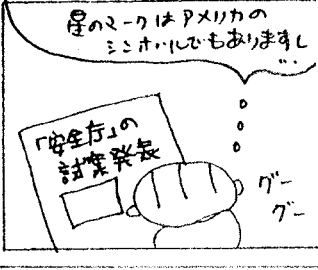 星のマークはアメリカの
シンボルでもありますし
…
「安全庁」の
試案発表
グー
グー